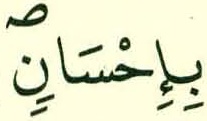 بِإِحْسَانٍ ص